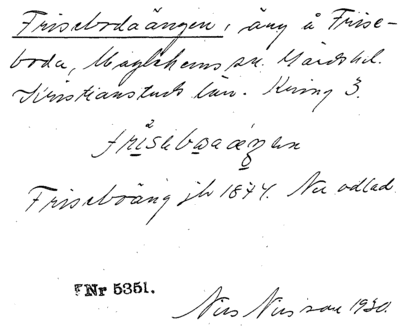 Frisebodaängen, äng å Frise-
boda, Maglehems sn. Gärds hd.
Kristianstads län. Kring 3.
Friseboäng jb 1874. Nu odlad.
FNr 5351.
Nils Nilsson 1930.